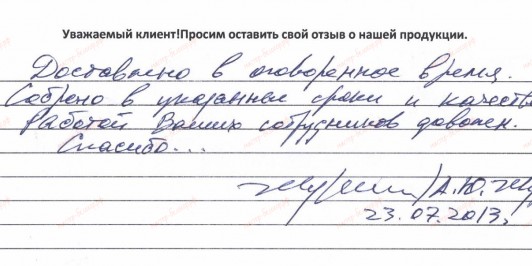 Уважаемый клиент!Просим оставить свой отзыв о нашей продукции.
Доставлено в оговоренное время.
Собрано в указанные сроки и качеств
Работой Ваших сотрудников доволен.
Спасибо...
А.Ю.
23.07.2013,